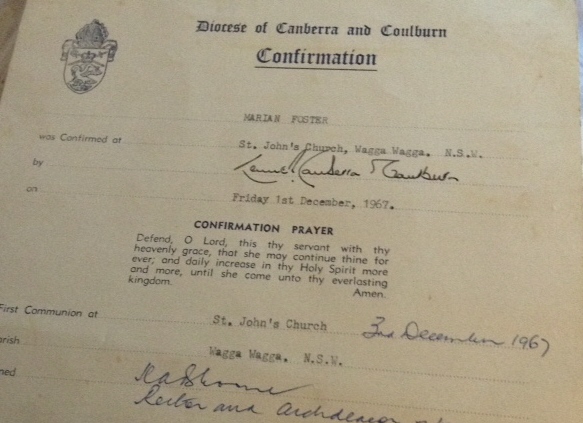 Diocese of Canberra and Goulburn
Confirmation
MARIAN FOSTER
was Confirmed at St. John's Church, Wagga Wagga. N.S.W.
by Canberra & Goulburn
on Friday 1st December, 1967.
CONFIRMATION PRAYER
Defend, O Lord, this thy servant with thy
heavenly grace, that she may continue thine for
ever; and daily increase in thy Holy Spirit more
and more, until she come unto thy everlasting
kingdom. Amen.
First Communion at St. John's Church 3rd December 1967
arish Wagga Wagga. N.S.W.
ned
Rector and Archdeacon